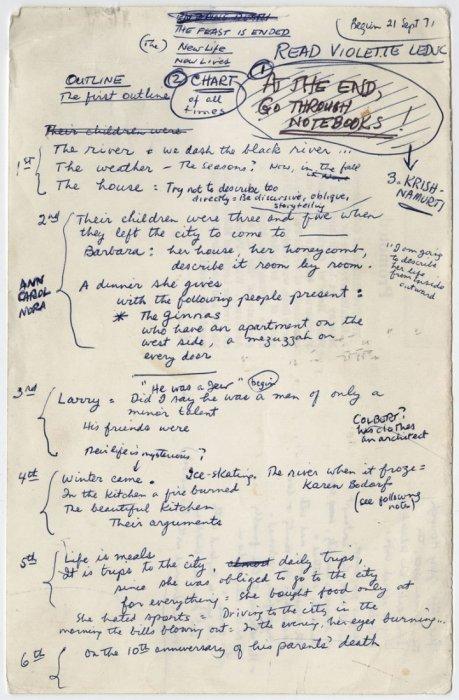 Begin 21 Sept 71
THE FEAST IS ENDED
(The) New Life
Now Lives
READ VIOLETTE LEDUC
OUTLINE
The first outline
② CHART
of all
times
① AT THE END,
GO THROUGH
NOTEBOOKS!
3. KRISH-
NAMURTI
Their children were
1st
The river = we dash the black river ...
The weather - The seasons? Now, in the fall
The house = Try not to describe too
directly = Be discursive, oblique,
storytelling
2nd
Their children were three and five when
they left the city to come to
Barbara: her house, her honeycomb,
describe it room by room.
"I am going
to describe
her life
from inside
outward
ANN
CAROL
NORA
A dinner she gives
with the following people present:
* The Ginnas
who have an apartment on the
west side, a mezuzzah on
every door
3rd
"He was a Jew" begin
Larry = Did I say he was a man of only a
minor talent
His friends were
COLBERT?
his clothes
an architect
Their life is mysterious?
4th
Winter came. Ice-skating. The river when it froze =
In the kitchen a fire burned
Karen Bodarf
The beautiful kitchen
(see following
notes)
Their arguments
5th
Life is meals
It is trips to the city, almost daily trips,
since she was obliged to go to the city
for everything = she bought food only at
She hated sports = Driving to the city in the
morning the bills blowing out = In the evening, her eyes burning...
6th
On the 10th anniversary of his parents' death